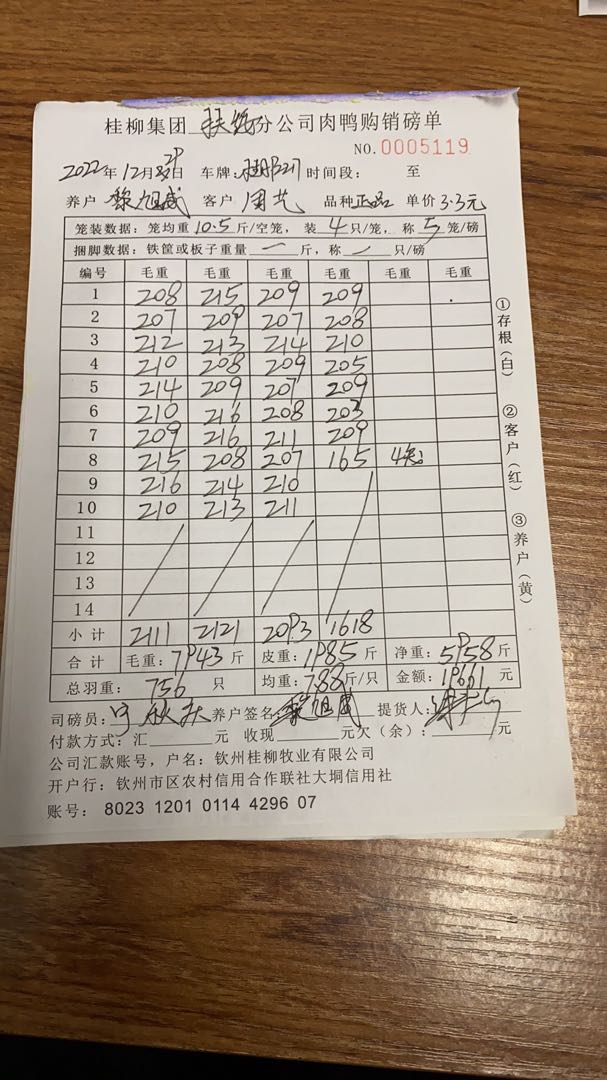 桂柳集团 扶绥 分公司肉鸭购销磅单
NO.0005119
2022年12月29日 车牌: 时间段: 至
养户 黎旭威 客户 周艺 品种 正品 单价 3.3元
笼装数据: 笼均重 10.5 斤/空笼, 装 4 只/笼, 称 5 笼/磅
捆脚数据: 铁筐或板子重量 一 斤, 称 一 只/磅
编号 毛重 毛重 毛重 毛重 毛重 毛重
1 208 215 209 209
2 207 209 207 208
3 212 213 214 210
4 210 208 209 205
5 214 209 207 209
6 210 216 208 203
7 209 216 211 209
8 215 208 207 165 4笼
9 216 214 210
10 210 213 211
11
12
13
14
小计 2111 2121 2093 1618
合计 毛重: 7943 斤 皮重: 1985 斤 净重: 5958 斤
总羽重: 756 只 均重: 7.88 斤/只 金额: 19661 元
司磅员: 养户签名: 黎旭威 提货人:
付款方式: 汇 元 收现 元欠(余): 元
公司汇款账号, 户名: 钦州桂柳牧业有限公司
开户行: 钦州市区农村信用合作联社大垌信用社
账号: 8023 1201 0114 4296 07
①存根(白)
②客户(红)
③养户(黄)